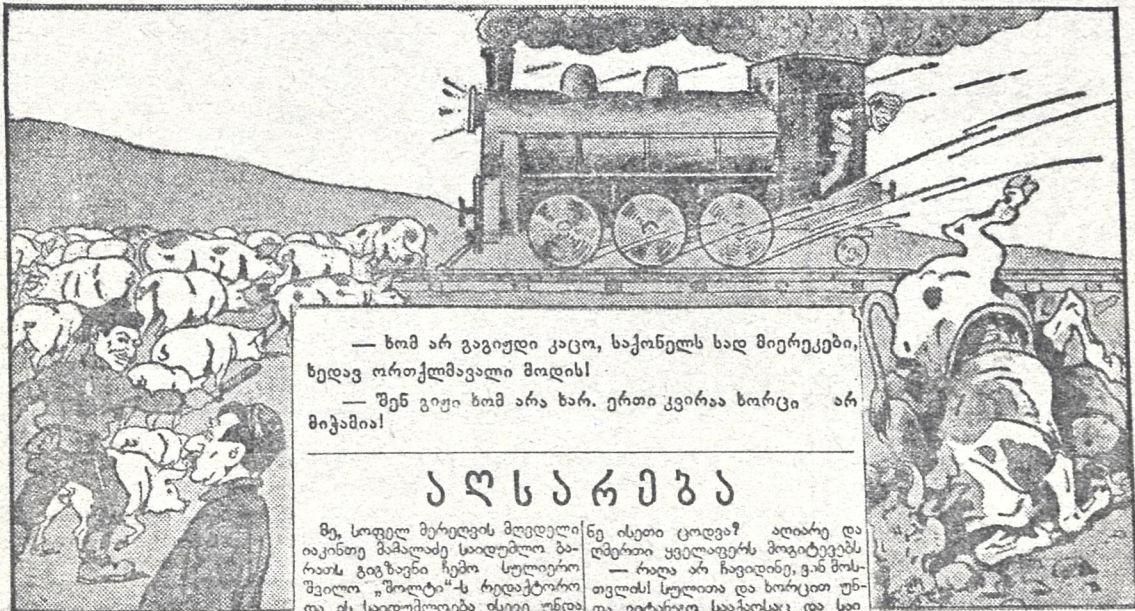 — ხომ არ გაგიჟდი კაცო, საქონელს სად მიერეკები,
ხედავ ორთქლმავალი მოდის!
— შენ გიჟი ხომ არა ხარ. ერთი კვირაა ხორცი არ
მიჭამია!
აღსარება
მე, სოფელ მერეღვის მღვდელი
იაკინთე მამალაძე საიდუმლო ბა-
რათს გიგზავნი ჩემო სულიერო
შვილო „შოლტი“-ს რედაქტორო
და ეს საიდუმლოება ისევე უნდა
ნე ისეთი ცოდვა? აღიარე და
ღმერთი ყველაფერს მოგიტევებს
— რაღა არ ჩავიდინე, ვინ მოს-
თვლის! სულითა და ხორცით უნ-
და ვიტანჯო სააქაოსაც და საი